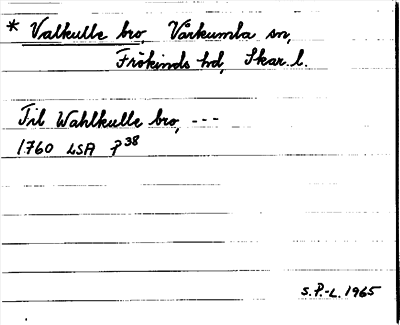 * Valkulle bro, Vårkumla sn,
Frökinds hd, Skar. l.
Til Wahlkulle bro, ---
1760 LSA P38
S.P.-L. 1965